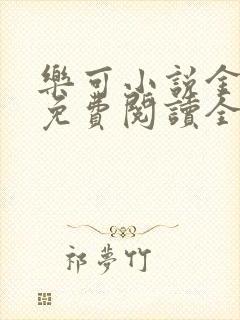 樂可小說全
免費閱讀全
祁夢竹